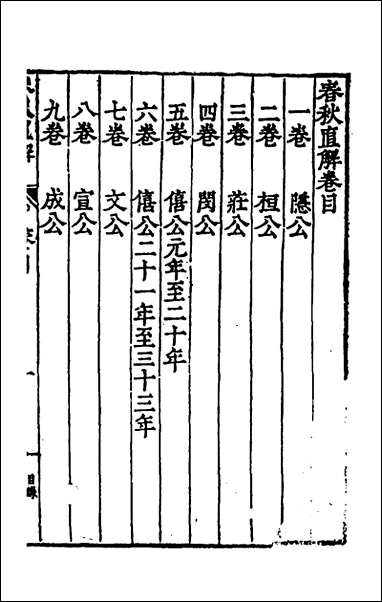 春秋直解卷目
一卷　隱公
二卷　桓公
三卷　莊公
四卷　閔公
五卷　僖公元年至二十年
六卷　僖公二十一年至三十三年
七卷　文公
八卷　宣公
九卷　成公
直解
一
目錄